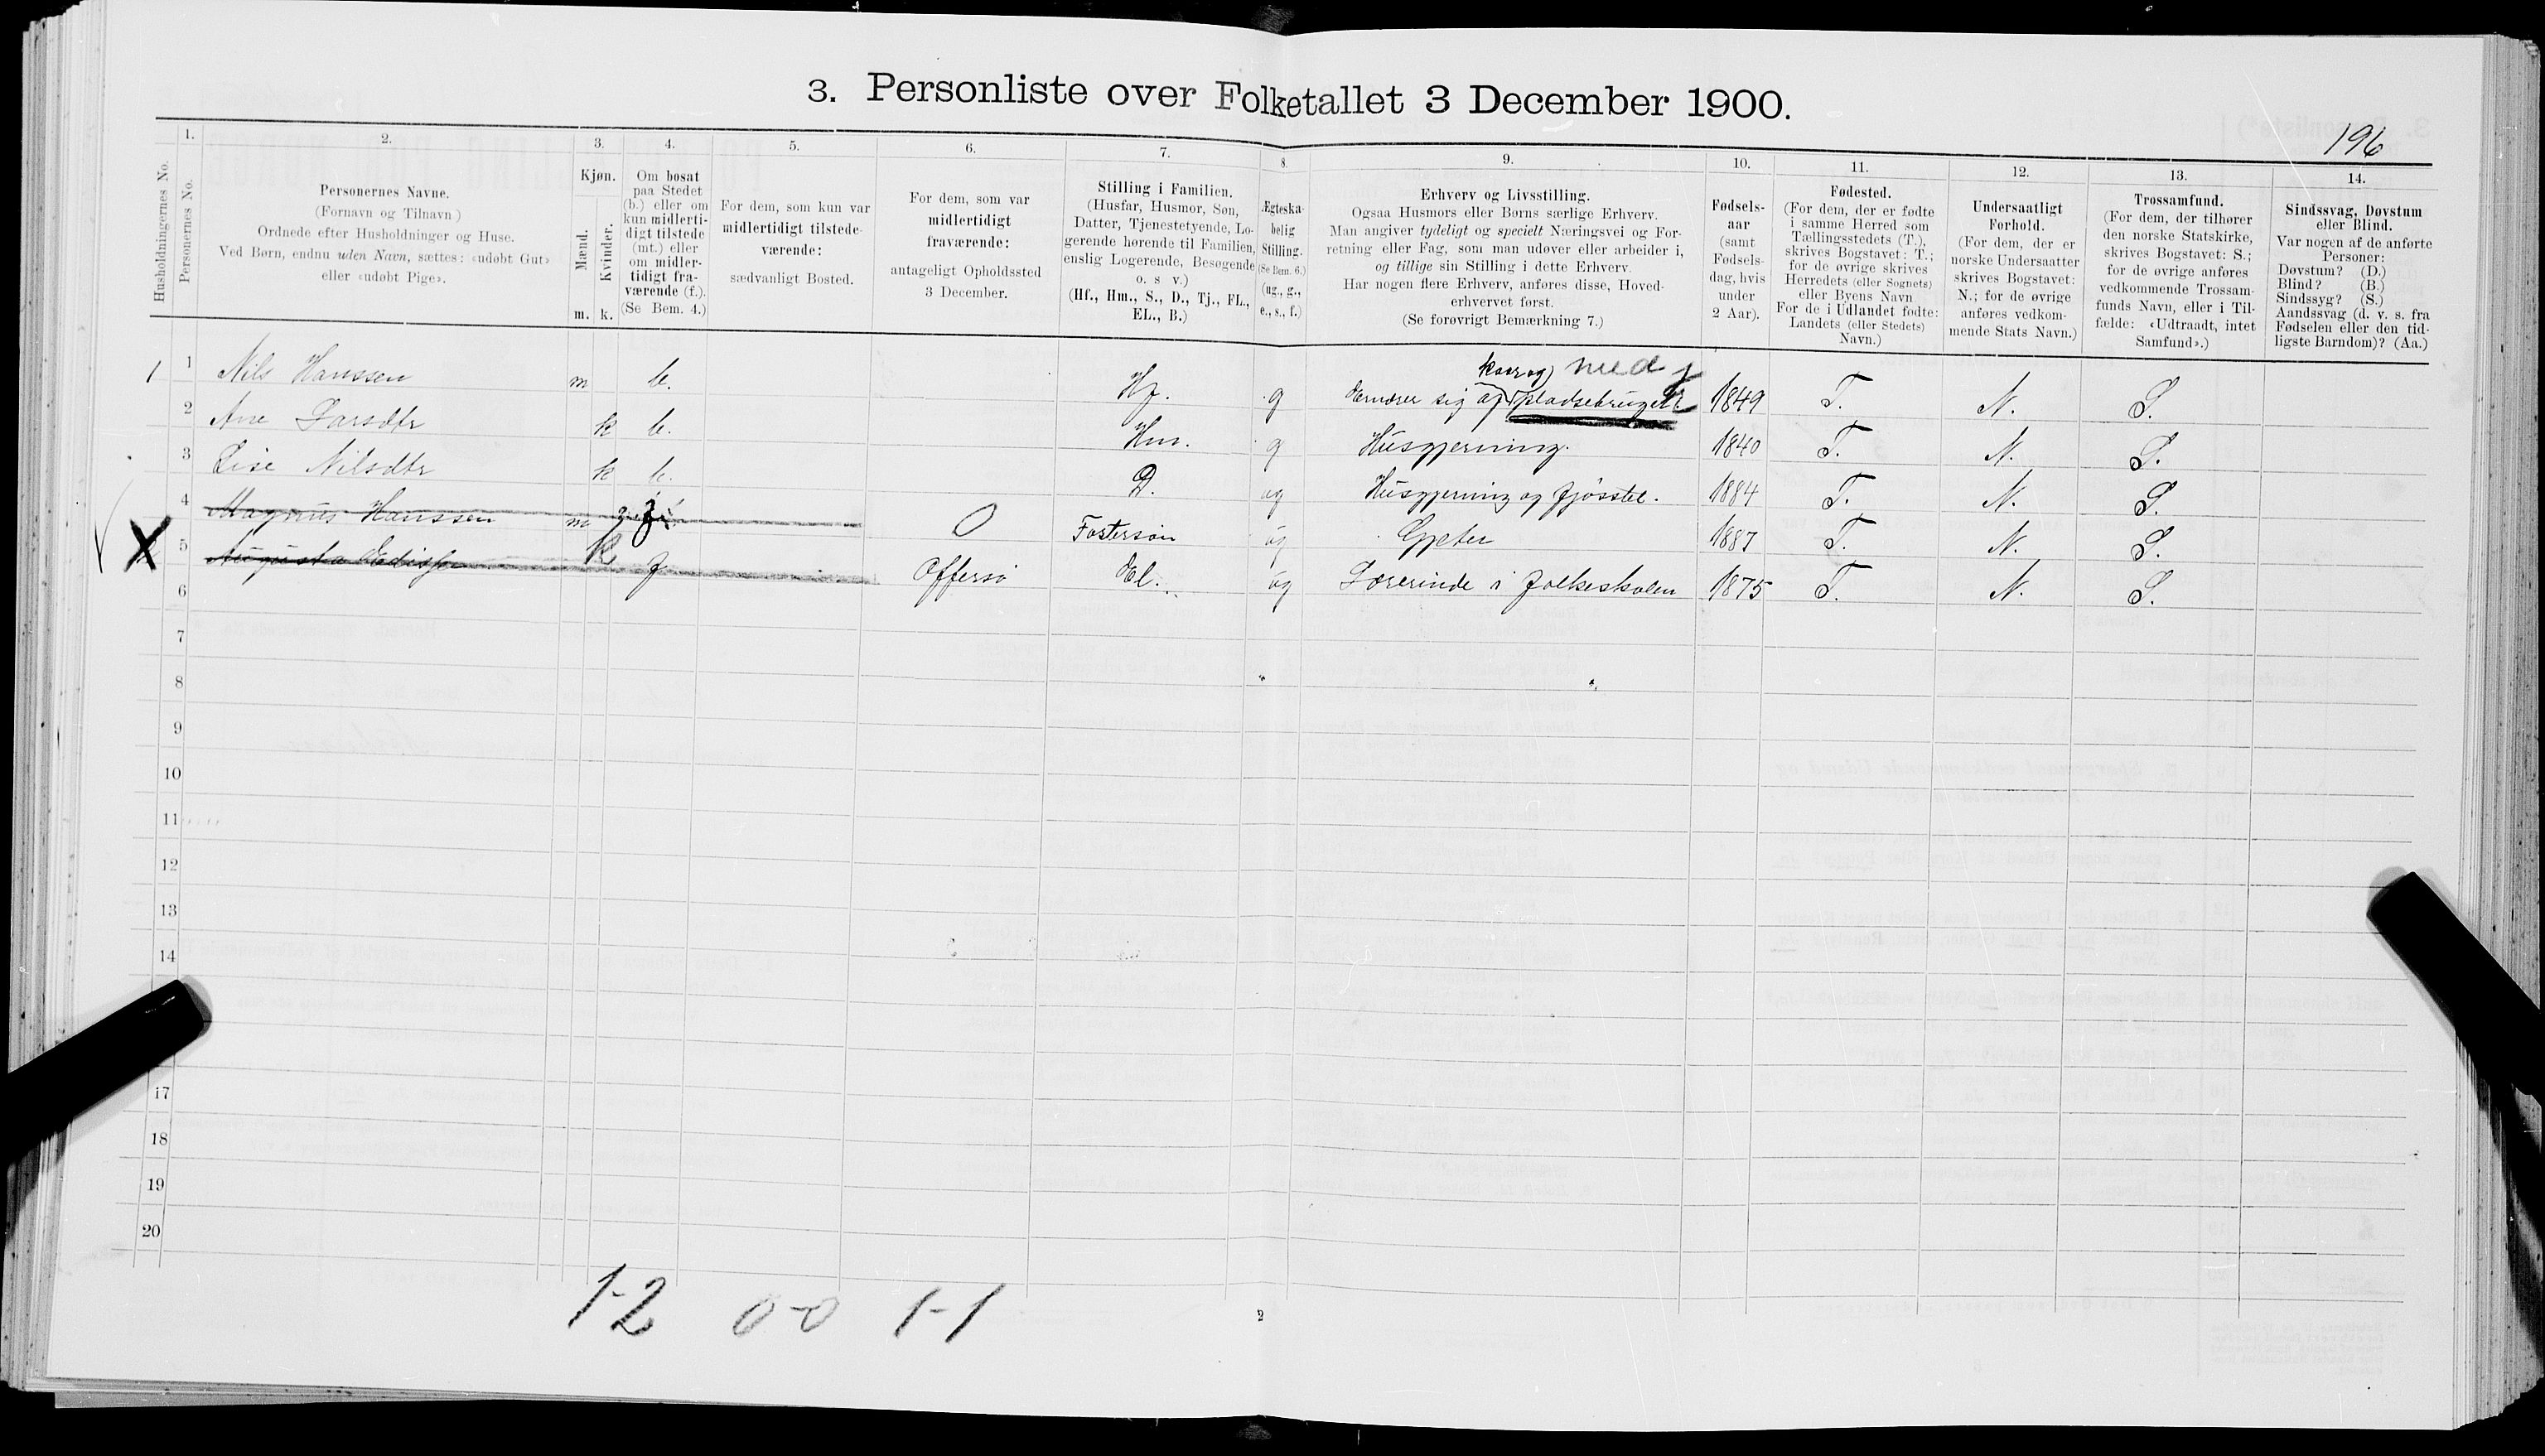 3. Personliste over Folketallet 3 December 1900.
196
1. 2. 3. 4. 5. 6. 7. 8. 9. 10. 11. 12. 13. 14.
Husholdningernes No.
Personernes No.
Personernes Navne.
(Fornavn og Tilnavn)
Ordnede efter Husholdninger og Huse.
Ved Børn, endnu uden Navn, sættes: «udøbt Gut»
eller «udøbt Pige».
Kjøn.
Mænd.
Kvinder.
m. k.
Om bosat
paa Stedet
(b.) eller om
kun midlerti-
digt tilstede
(mt.) eller
om midler-
tidigt fra-
værende (f.).
(Se Bem. 4.)
For dem, som kun var
midlertidigt tilstede-
værende:
sædvanligt Bosted.
For dem, som var
midlertidigt
fraværende:
antageligt Opholdssted
3 December.
Stilling i Familien.
(Husfar, Husmor, Søn,
Datter, Tjenestetyende, Lo-
gerende hørende til Familien,
enslig Logerende, Besøgende
o. s v.)
(Hf., Hm., S., D., Tj., FL.,
EL., B.)
Ægteska-
belig
Stilling.
(Se Bem. 6.)
(ug., g.,
e., s., f.)
Erhverv og Livsstilling.
Ogsaa Husmors eller Børns særlige Erhverv.
Man angiver tydeligt og specielt Næringsvei og For-
retning eller Fag, som man udøver eller arbeider i,
og tillige sin Stilling i dette Erhverv.
Har nogen flere Erhverv, anføres disse, Hoved-
erhvervet først.
(Se forøvrigt Bemærkning 7.)
Fødsels-
aar
(samt
Fødsels-
dag, hvis
under
2 Aar).
Fødested.
(For dem, der er fødte
i samme Herred som
Tællingsstedets (T.),
skrives Bogstavet: T.;
for de øvrige skrives
Herredets (eller Sognets)
eller Byens Navn
For de i Udlandet fødte:
Landets (eller Stedets)
Navn.)
Undersaatligt
Forhold.
(For dem, der er
norske Undersaatter
skrives Bogstavet:
N.; for de øvrige
anføres vedkom-
mende Stats Navn.)
Trossamfund.
(For dem, der tilhører
den norske Statskirke,
skrives Bogstavet: S.;
for de øvrige anføres
vedkommende Trossam-
funds Navn, eller i Til-
fælde: «Udtraadt, intet
Samfund».)
Sindssvag, Døvstum
eller Blind.
Var nogen af de anførte
Personer:
Døvstum? (D.)
Blind? (B.)
Sindssyg? (S.)
Aandssvag (d. v. s. fra
Fødselen eller den tid-
ligste Barndom)? (Aa.)
1 1 Nils Hanssen m b. Hf. g ernærer sig af pladsebruget 1849 T. N. S.
2 Ane Larsdtr k b. Hm. g Husgjerning. 1840 T. N. S.
3 Lise Nilsdtr k b. D. ug Husgjerning og fjøsstel. 1884 T. N. S.
4 Magnus Hanssen m f O Fostersøn ug Gjeter 1887 T. N. S.
X 5 Augusta k f Offersø El. ug Lærerinde i folkeskolen 1875 T. N. S.
6
7
8
9
10
11
12
13
14
17
18
19
20
1-2 0-0 1-1
2